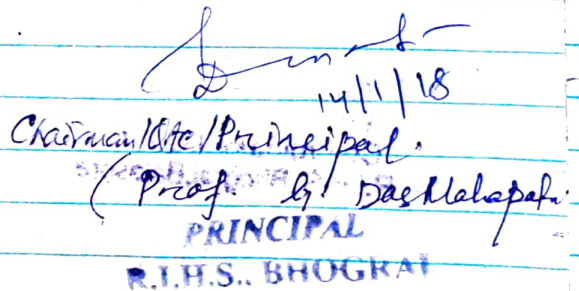 14/1/18
Chairman/QAC/Principal.
(Prof. G. DasMahapatra
PRINCIPAL
R.I.H.S., BHOGRAI